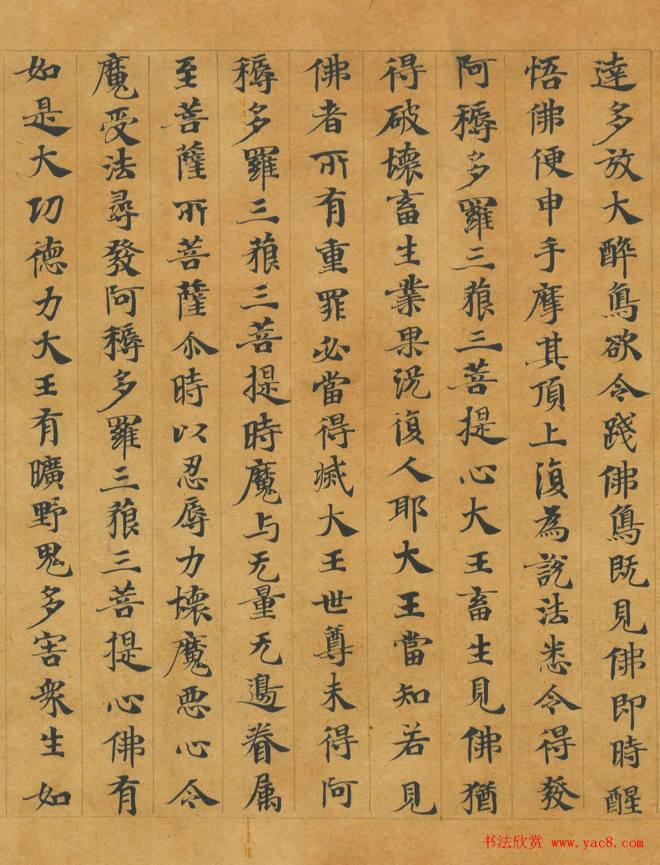 達多放大醉鳥欲令踐佛鳥既見佛即時醒
悟佛便申手摩其頂上復為說法悉令得發
阿耨多羅三藐三菩提心大王畜生見佛猶
得破壞畜生業果況復人耶大王當知若見
佛者所有重罪必當得滅大王世尊未得阿
耨多羅三藐三菩提時魔与无量无邊眷属
至菩薩所菩薩尒時以忍辱力壞魔悪心令
魔受法尋發阿耨多羅三藐三菩提心佛有
如是大功德力大王有曠野鬼多害衆生如
书法欣赏 →www.yac8.com